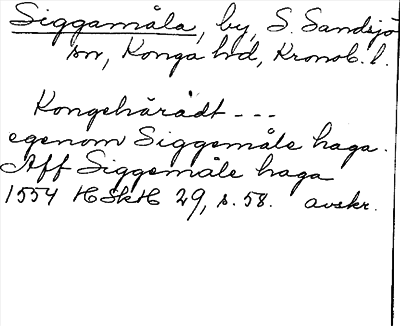 Siggamåla, by, S. Sandsjö
sn, Konga hd, Kronob. l.
Kongehäradt ---
egenom Siggemåle haga.
Aff Siggemåle haga
1554 HSkH 29, s. 58. avskr.